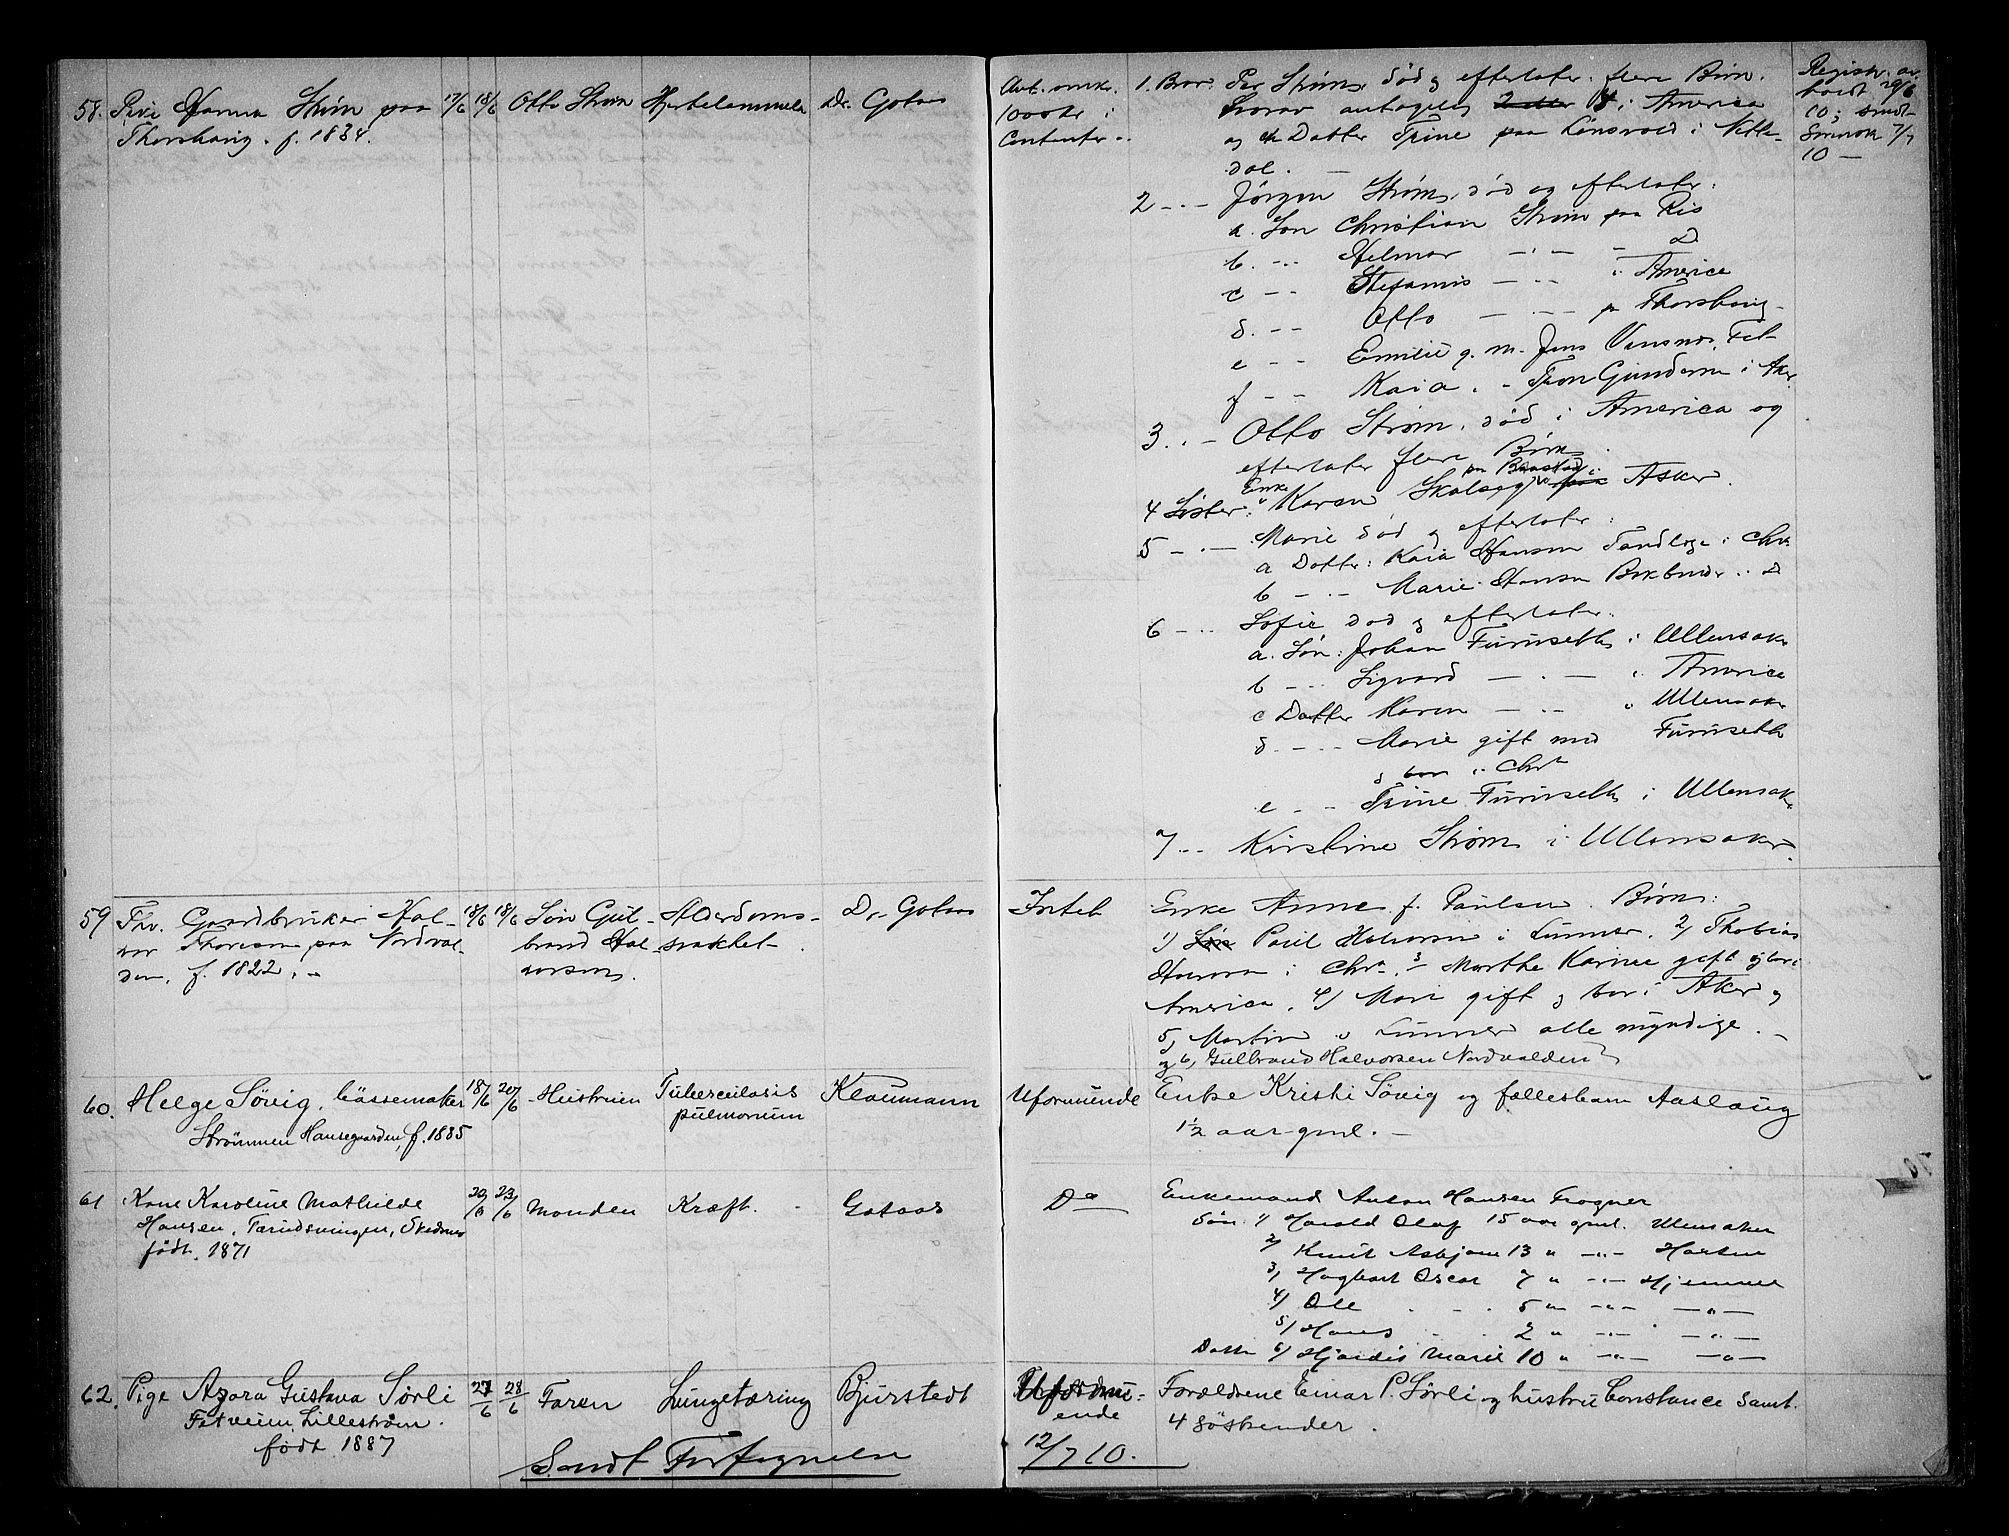 58. Pike Hanna Strøm paa 17/6 18/6 Otto Strøm Hjertelammelse Dr. Gotaas
Thorshaug. f. 1834.
Ant. omkr.
1000 kr i
Contanter
1. Bror: Per Strøm, død og efterlater flere Børn.
hvorav antagelig i America
og Datter Trine paa Lønsvold i Nitte-
dal.
2 Jørgen Strøm, død og efterlater:
a. Søn Christian Strøm paa Ris
b. Helmer
c Stefanus i America
d. Otto p Thorshaug
e Emilie g. m. Jens Fet
f Kaia Gundersen i Aker
3 Otto Strøm, død i America og
efterlater flere Børn
4 Søster: Enke Karen Asker.
5 Marie død og efterlater:
a Datter: Kaia Hansen i Chr.
b Marie Hansen
6 Sofie død og efterlater:
a. Søn: Johan Furuseth i Ullensaker
b Sigvard i America
c Datter Karen Ullensaker
d. Marie gift med Furuseth
g bor i Chra
e Trine Furuseth i Ullensaker
7 Kirstine Strøm i Ullensaker.
Registr. av
holdt 29/6
10; sendt
7/7
10
59 Fhv. Gaardbruker Hal-
vor Thoresen paa Nordval-
den, f. 1822.
18/6 18/6 Søn Gul-
brand Hal-
vorsen.
Alderdoms-
svakhet
Dr. Gotaas
Intet
Enke Anne f. Paulsen. Børn:
1) Paul Halvorsen i Lunner, 2) Thobias
i Chra, 3 Marthe Karine gift og bor i
America, 4) Mari gift og bor i Aker og
5, Martin i Lunner alle myndige.
og 6, Gulbrand Halvorsen Nordvalden
60. Helge Søvig, bøssemaker 18/6 20/6 Hustruen Tuberculosis Klaumann Uformuende Enke Kristi Søvig og fællesbarn Aaslaug
Strømmen Hansegaarden, f. 1885 pulmonum 1½ aar gml.
61 Kone Karoline Mathilde 20/6 23/6 Manden Kræft. Gotaas Do Enkemand Anton Hansen Frogner
Hansen, Skedsmo
født. 1871
Søn 1) Harald Olaf 15 aar gml. Ullensaker
2) Knut Asbjørn 13 " -"- Horten
3, Hagbart Oscar 7 " -"- Hjemme
4) Ole 5 " -"- -"-
5) Hans 2 " -"- -"-
Datter 6) Hjørdis Marie 10 " -"- -"-
62. Pige Azora Gustava Sørli 27/6 28/6 Faren Lungetæring Bjurstedt Uformu- Forældrene Einar P. Sørli og hustru Constance samt
Fetveien, Lillestrøm. ende 4 søskender.
født 1887
Sendt Fortegnelse 12/7 10.